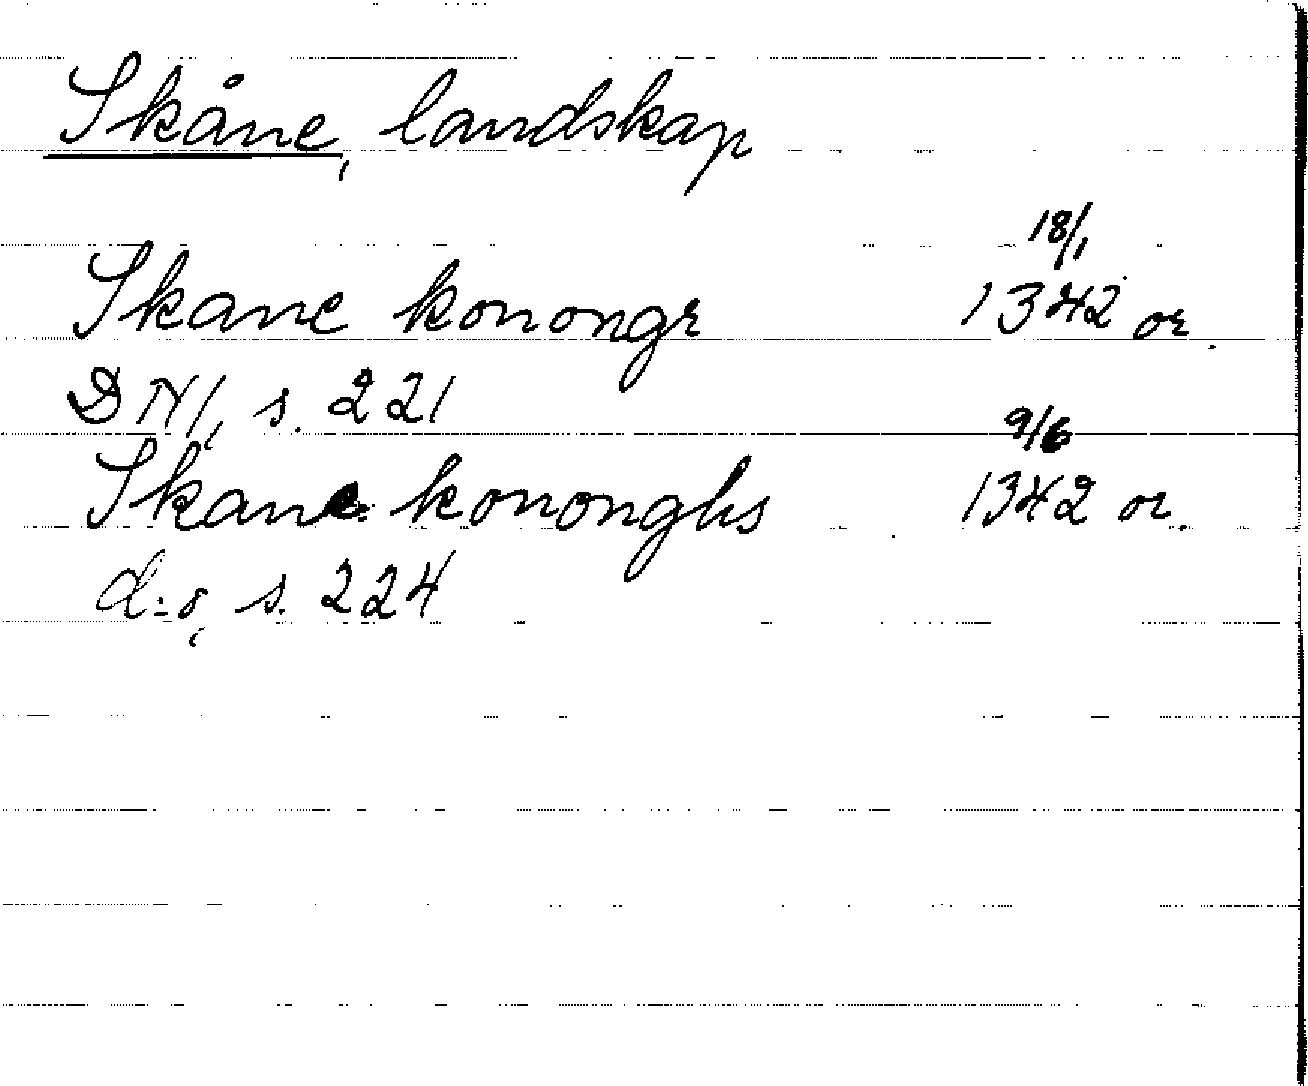 Skåne, landskap
18/1
Skane konongr 1342 or.
DN1, s. 221
9/6
Skane kononghs 1342 or.
d:o, s. 224